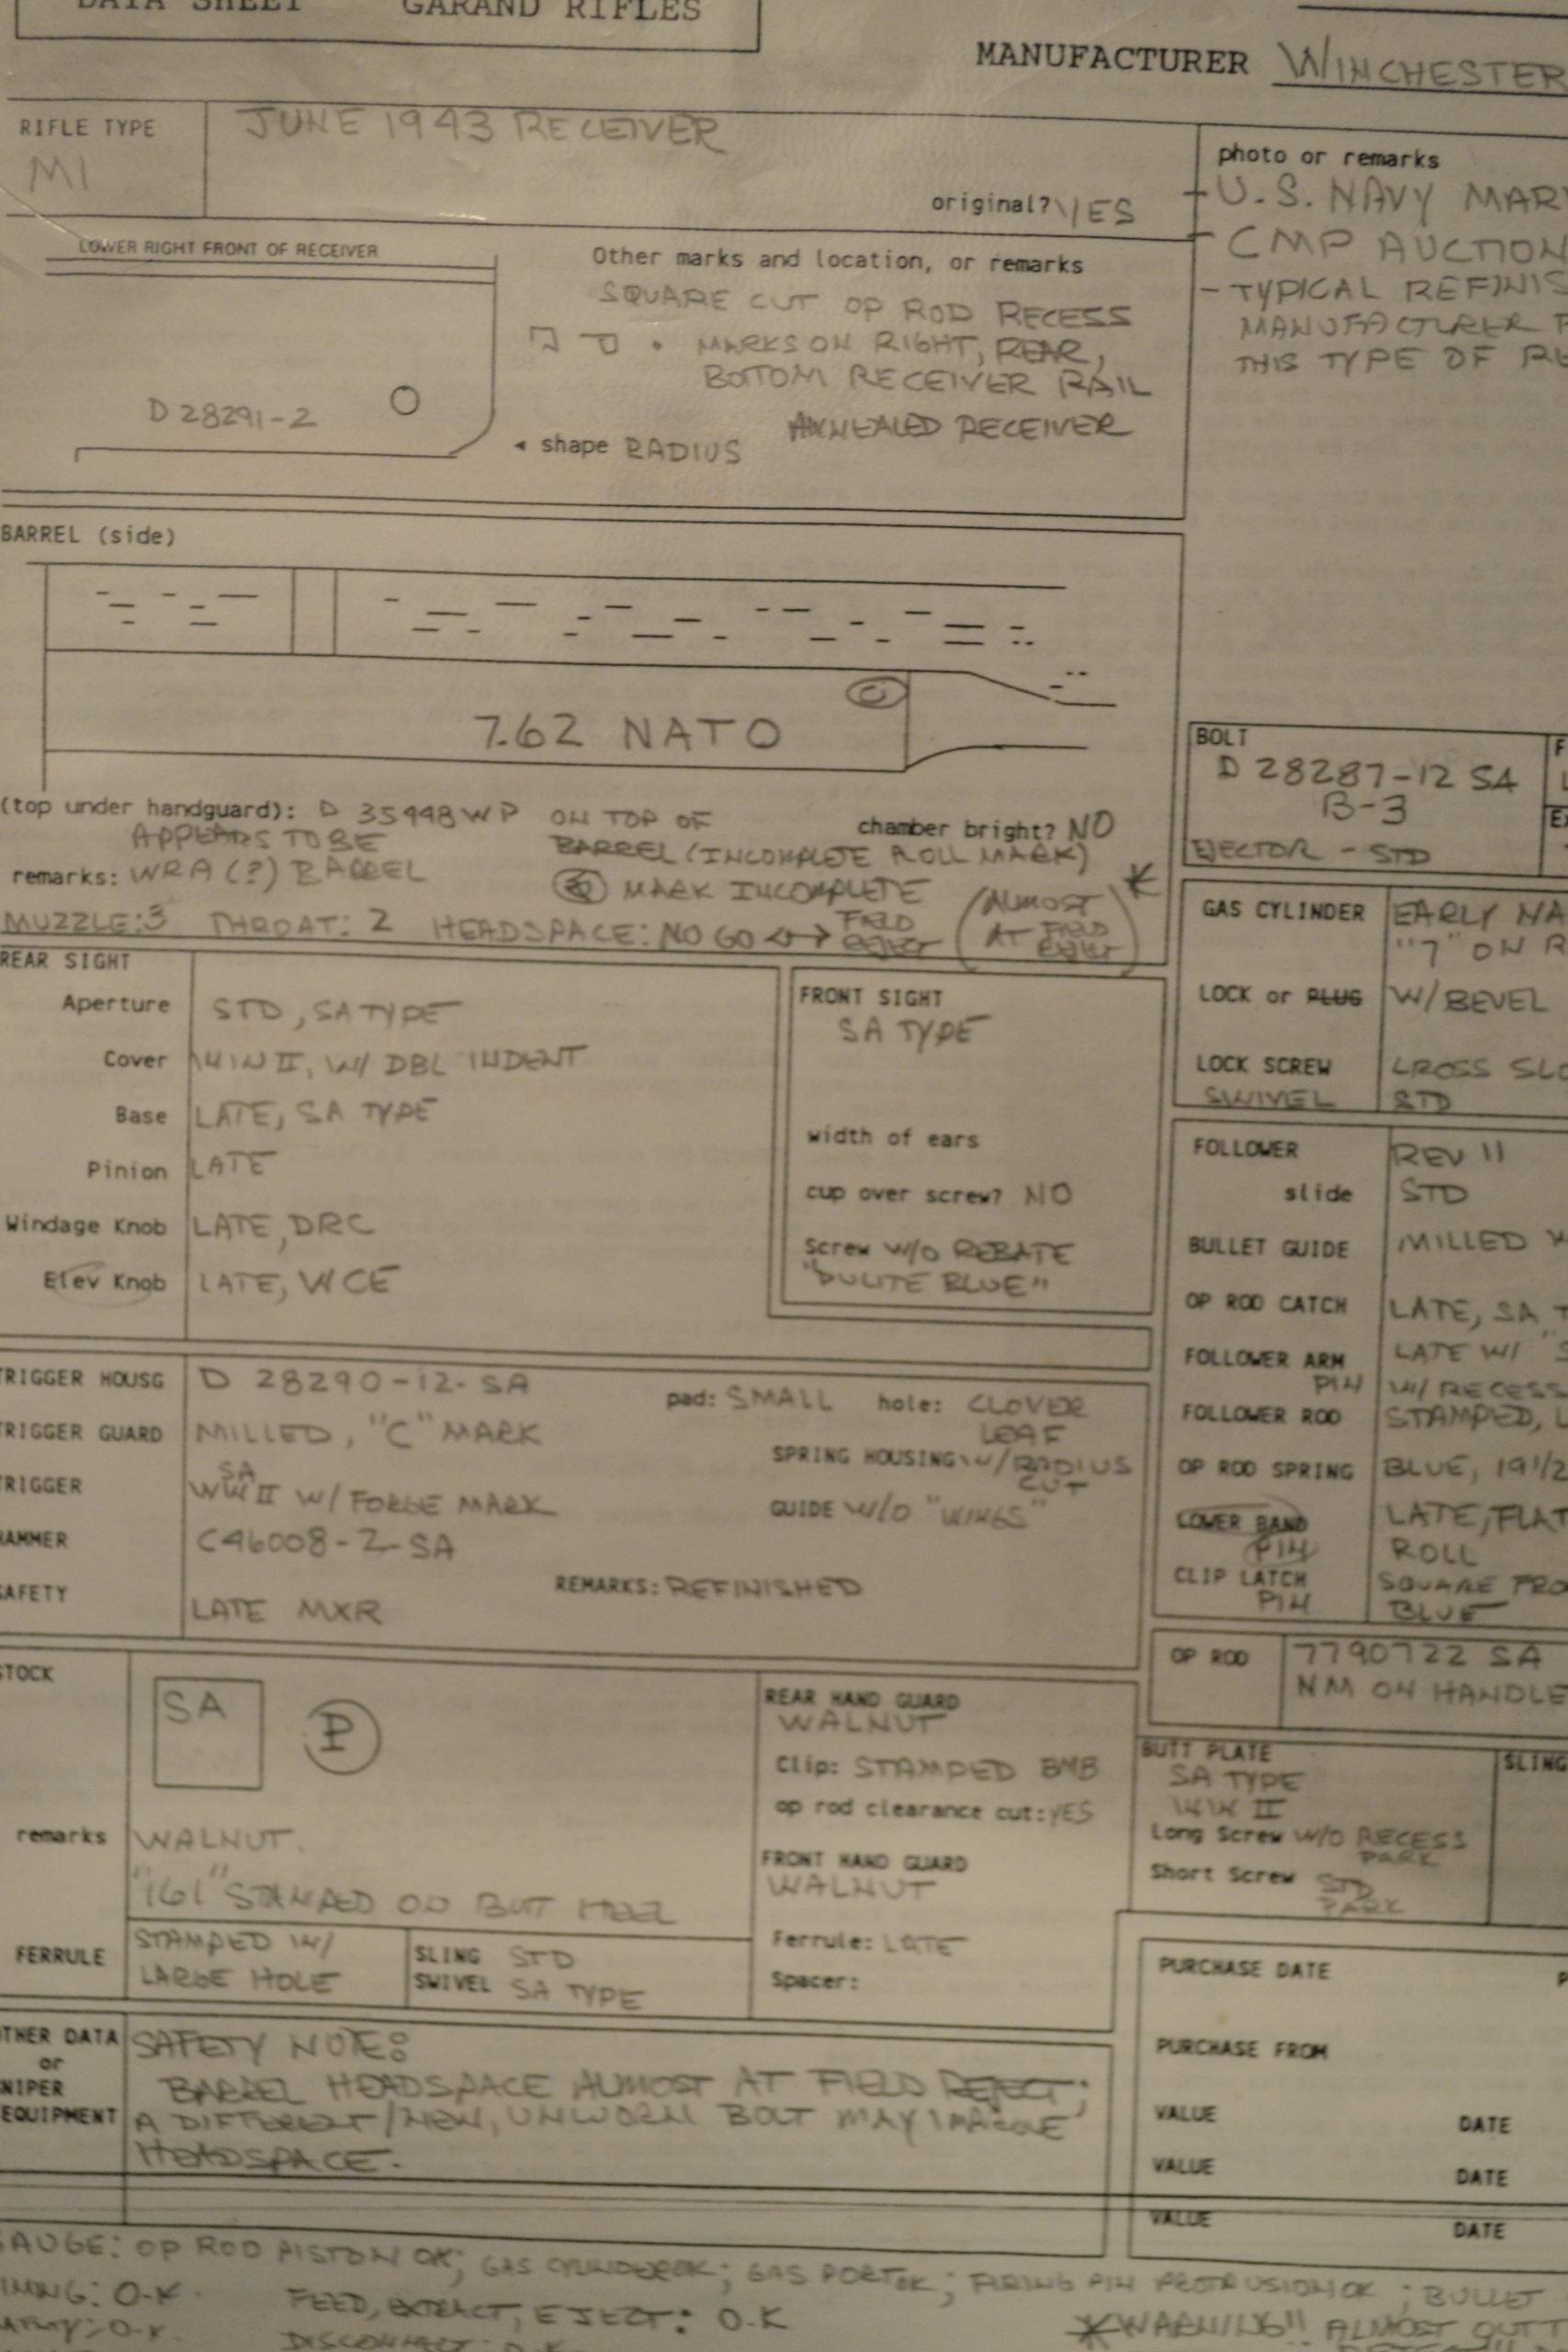 DATA SHEET GARAND RIFLES
MANUFACTURER WINCHESTER
RIFLE TYPE
M1
JUNE 1943 RECEIVER
original? YES
photo or remarks
- U.S. NAVY MAR
- CMP AUCTION
- TYPICAL REFINIS
MANUFACTURER
THIS TYPE OF RE
LOWER RIGHT FRONT OF RECEIVER
D 28291-2
Other marks and location, or remarks
SQUARE CUT OP ROD RECESS
MARKS ON RIGHT, REAR,
BOTTOM RECEIVER RAIL
ANNEALED RECEIVER
◂ shape RADIUS
BARREL (side)
7.62 NATO
(top under handguard): D 35448 WP ON TOP OF
BARREL (INCOMPLETE ROLL MARK)
chamber bright? NO
APPEARS TO BE
remarks: WRA (?) BARREL
MARK INCOMPLETE
MUZZLE: 3 THROAT: 2 HEADSPACE: NO GO ↔ FIELD REJECT (ALMOST AT FIELD REJECT) *
BOLT
D 28287-12 SA
B-3
EJECTOR - STD
GAS CYLINDER EARLY NA
"7" ON R
LOCK or PLUG W/ BEVEL
LOCK SCREW CROSS SLO
SWIVEL STD
REAR SIGHT
Aperture STD, SA TYPE
Cover WW II, W/ DBL INDENT
Base LATE, SA TYPE
Pinion LATE
Windage Knob LATE, DRC
Elev Knob LATE, WCE
FRONT SIGHT
SA TYPE
width of ears
cup over screw? NO
Screw W/O REBATE
"DULITE BLUE"
FOLLOWER REV 11
slide STD
BULLET GUIDE MILLED W
OP ROD CATCH LATE, SA T
FOLLOWER ARM LATE W/ "S
PIN W/ RECESS
FOLLOWER ROD STAMPED, L
OP ROD SPRING BLUE, 19 1/2
LOWER BAND LATE, FLAT
PIN ROLL
CLIP LATCH SQUARE FRO
PIN BLUE
TRIGGER HOUSG D 28290-12-SA
pad: SMALL hole: CLOVER
LEAF
TRIGGER GUARD MILLED, "C" MARK
SPRING HOUSING W/ RADIUS
CUT
TRIGGER SA WW II W/ FORGE MARK
GUIDE W/O "WINGS"
HAMMER C46008-2-SA
SAFETY LATE MXR
REMARKS: REFINISHED
OP ROD 7790722 SA
NM ON HANDLE
STOCK
SA
P
remarks WALNUT.
"161" STAMPED ON BUTT HEEL
FERRULE STAMPED W/
LARGE HOLE
SLING STD
SWIVEL SA TYPE
REAR HAND GUARD
WALNUT
Clip: STAMPED BMB
op rod clearance cut: YES
FRONT HAND GUARD
WALNUT
Ferrule: LATE
Spacer:
BUTT PLATE
SA TYPE
WW II
Long Screw W/O RECESS
PARK
Short Screw STD
PARK
SLING
PURCHASE DATE
PURCHASE FROM
VALUE DATE
VALUE DATE
VALUE DATE
OTHER DATA
or
SNIPER
EQUIPMENT
SAFETY NOTE:
BARREL HEADSPACE ALMOST AT FIELD REJECT;
A DIFFERENT/NEW, UNWORN BOLT MAY IMPROVE
HEADSPACE.
GAUGE: OP ROD PISTON OK; GAS CYLINDER OK; GAS PORT OK; FIRING PIN PROTRUSION OK; BULLET
TIMING: O.K. FEED, EXTRACT, EJECT: O.K
O.K. DISCONNECT: O.K
*WARNING!! ALMOST OUT